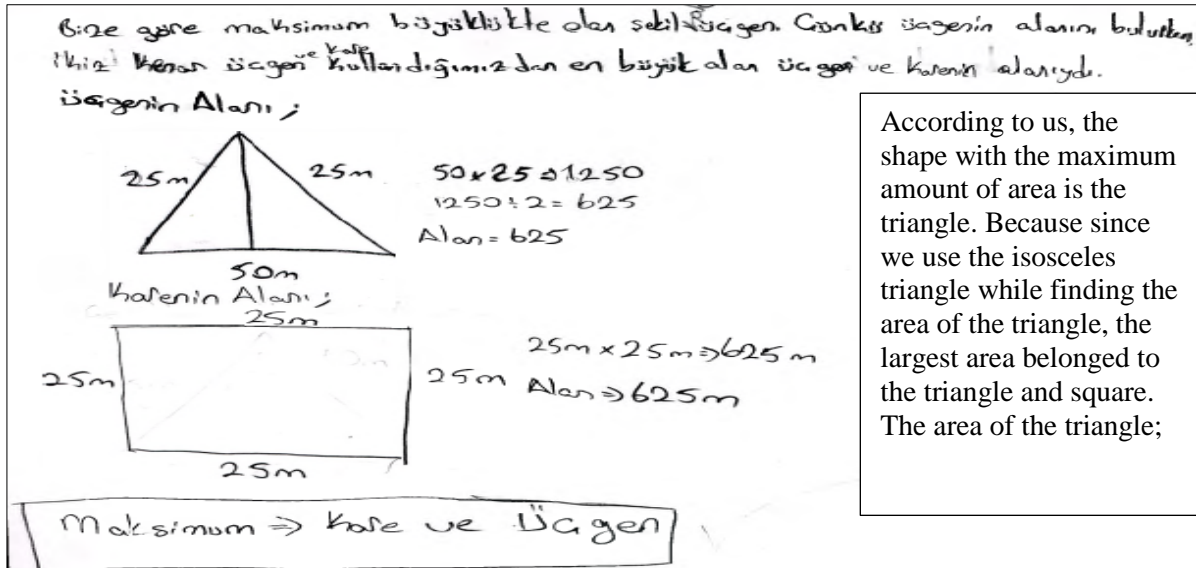 Bize göre maksimum büyüklükte olan şekil üçgen. Çünkü üçgenin alanını bulurken,
ikiz kenar üçgen ve kare kullandığımızdan en büyük alan üçgen ve karenin alanıydı.
Üçgenin Alanı;
25m
25m
50×25⇒1250
1250÷2=625
Alan=625
50m
Karenin Alanı;
25m
25m
25m
25m×25m⇒625m
Alan⇒625m
25m
Maksimum ⇒ Kare ve Üçgen
According to us, the
shape with the maximum
amount of area is the
triangle. Because since
we use the isosceles
triangle while finding the
area of the triangle, the
largest area belonged to
the triangle and square.
The area of the triangle;